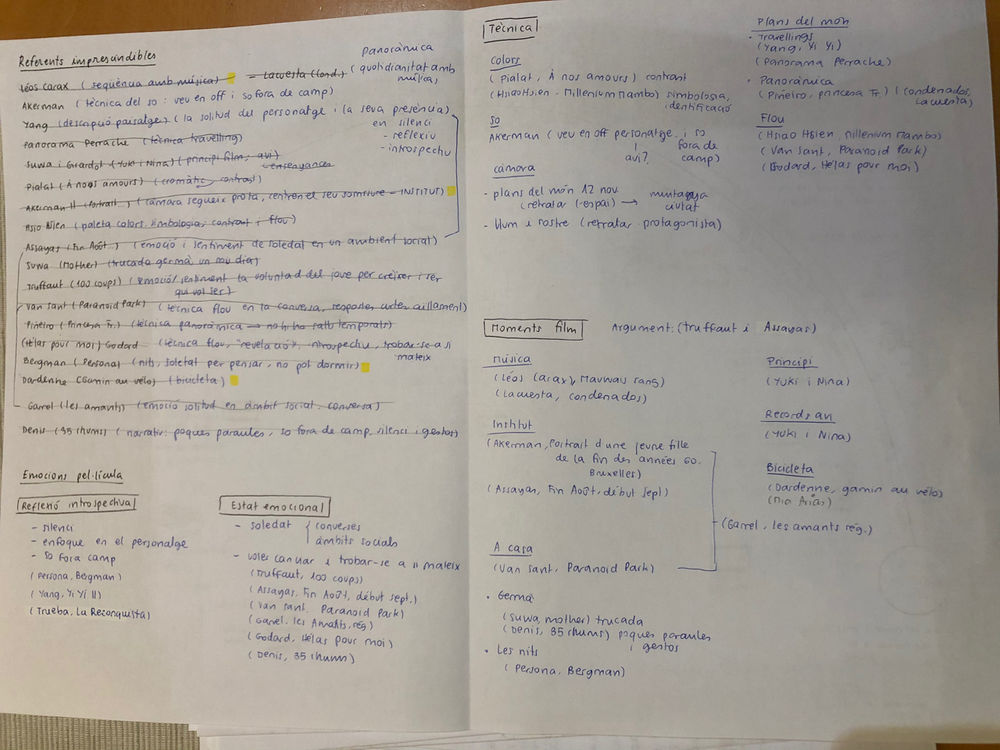 Referents imprescindibles
Panoràmica
Léos Carax (seqüència amb música) → Lacuesta (Cond.) (quotidianitat amb música)
Akerman (tècnica del so: veu en off i so fora de camp)
Yang (descripció paisatge) (la solitud del personatge i la seva presència)
en silenci
- reflexiu
- introspectiu
Panorama Perrache (tècnica travelling)
Suwa i Girardot (Yuki i Nina) (principi film, avi)
ensenyances
Pialat (À nos amours) (cromàtic, contrast)
Akerman II (Portrait) (càmara segueix prota, centren el seu somriure - INSTITUT)
Hsio Hsien (paleta colors, simbologia, contrast i flou)
Assayas (Fin Août..) (emoció i sentiment de soledat en un ambient social)
Suwa (Mother) (trucada germà un dia)
Truffaut (100 coups) (emoció/sentiment la voluntad del jove per créixer i ser
qui vol ser)
Van Sant (Paranoid Park) (tècnica flou en la conversa, respostes curtes aïllament)
Piñeiro (Princesa Fr.) (tècnica panoràmica → no hi ha salts temporals)
(Hélas pour moi) Godard (tècnica flou, "revelació", introspectiu, trobar-se a si
mateix
Bergman (Persona) (nits, soletat per pensar, no pot dormir)
Dardenne (Gamin au vélo) (bicicleta)
Garrel (les amants) (emoció solitud en àmbit social. conversa)
Denis (35 rhums) (narratiu: poques paraules, so fora de camp, silenci i gestos)
Emocions pel·lícula
Reflexió introspectiva
- silenci
- enfoque en el personatge
- so fora camp
(Persona, Bergman)
(Yang, Yi Yi II)
(Trueba, La Reconquista)
Estat emocional
- soledat { converses
àmbits socials
- voler canviar i trobar-se a si mateix
(Truffaut, 100 coups)
(Assayas, Fin Août, début sept.)
(Van Sant. Paranoid Park)
(Garrel, les Amants, rég)
(Godard, Hélas pour moi)
(Denis, 35 rhum)
Tècnica
colors
(Pialat, À nos amours) contrast
(Hsiao Hsien - Millenium Mambo) simbologia,
identificació
so
Akerman (veu en off personatge i so
fora de
camp)
avi?
càmara
- plans del món 12 nov
(retratar l'espai) → muntanya
ciutat
- llum i rostre (retratar protagonista)
Plans del món
• Travellings
(Yang, Yi Yi)
(Panorama Perrache)
• Panoràmica
(Piñeiro, princesa Fr.) (condenados,
Lacuesta)
Flou
(Hsiao Hsien, Millenium Mambo)
(Van Sant, Paranoid Park)
(Godard, Hélas pour moi)
Moments film
Argument: (Truffaut i Assayas)
Música
(Léos Carax, Mauvais sang)
(Lacuesta, condenados)
Institut
(Akerman, Portrait d'une jeune fille
de la fin des années 60.
Bruxelles)
(Assayas, Fin Août, début sept)
(Garrel, les amants rég.)
A casa
(Van Sant, Paranoid Park)
• Germà
(Suwa, mother) trucada
(Denis, 35 rhums) poques paraules
i gestos
• Les nits
(Persona, Bergman)
Principi
(Yuki i Nina)
Records avi
(Yuki i Nina)
Bicicleta
(Dardenne, gamin au vélo)